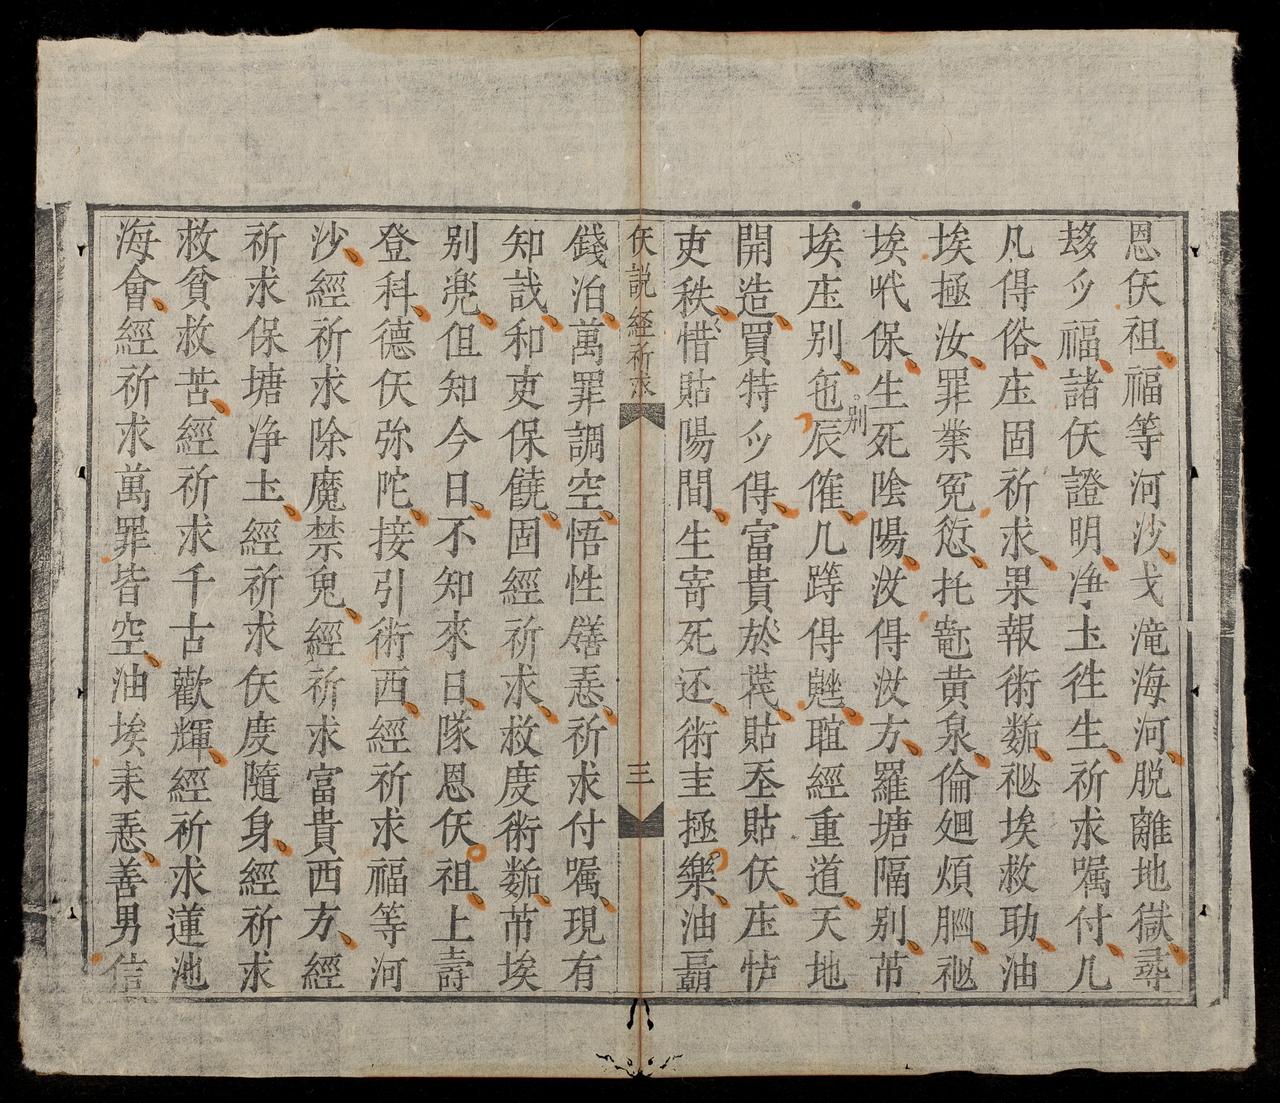 恩仸祖福等河沙戈滝海河脱離地獄尋
𠫾𫥨福諸仸證明净土徃生祈求嘱付几
凡得俗㐌固祈求果報術𪀄𥘶埃救助油
埃極汝罪業冤愆托𥧌黄泉倫廻煩腦𥘶
埃𠸜保生死陰陽汝得汝方羅塘隔别芇
埃㐌别㐌辰傕几蹲得𨅸𦖑經重道天地
開造買特𫥨得富貴於𫯳貼丕貼仸㐌𢗼
吏秩惜貼陽間生寄死还術主極樂油覇
别
仸説經祈求
三
錢泊萬罪調空悟性饍𢙇祈求付嘱現有
知㦲和吏保饒固經祈求救度術𪀄芇埃
别𠒥但知今日不知來日隊恩仸祖上壽
登科德仸弥陀接引術西經祈求福等河
沙經祈求除魔禁鬼經祈求富貴西方經
祈求保塘净土經祈求仸度隨身經祈求
救貧救苦經祈求千古歡輝經祈求蓮池
海會經祈求萬罪皆空油埃耒𢙇善男信